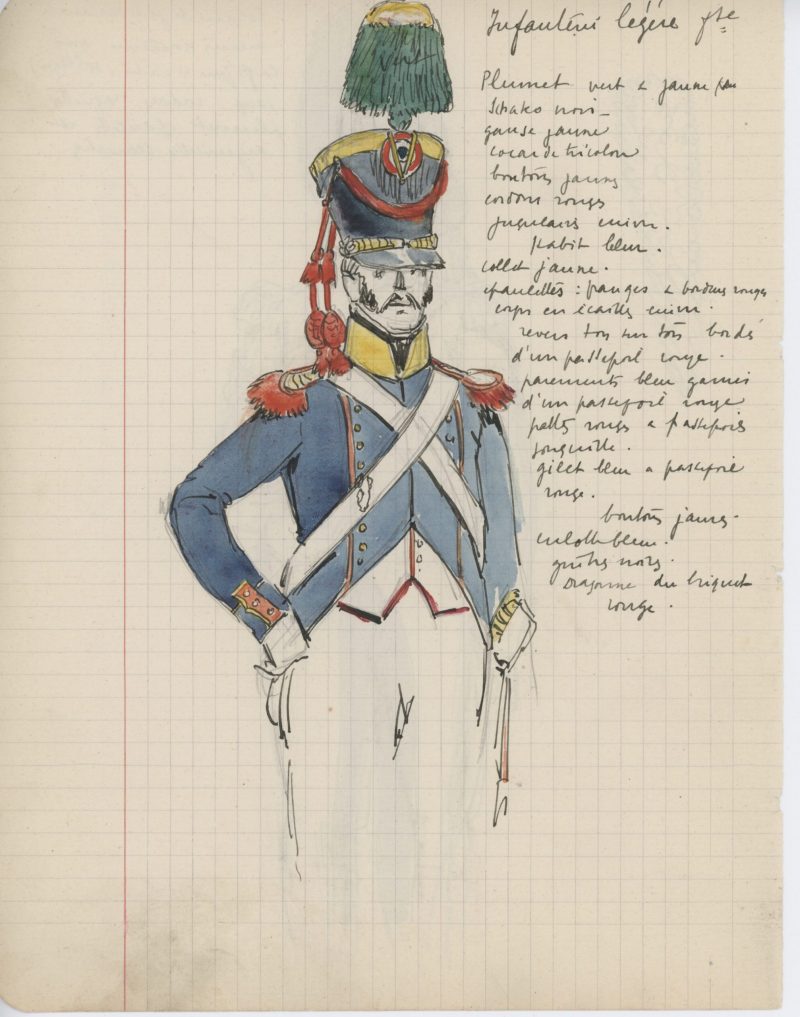 Infanterie légère fse
Plumet vert & jaune
Schako noir -
ganse jaune
cocarde tricolore
boutons jaunes
cordons rouges
jugulaires cuivre.
Habit bleu.
collet jaune.
épaulettes : franges & bordures rouges
corps en écailles cuivre.
revers ton sur ton bordé
d'un passepoil rouge.
parements bleu garnis
d'un passepoil rouge
pattes rouges & passepoils
jonquille.
gilet bleu & passepoil
rouge.
boutons jaunes.
culotte bleu.
guêtres noires.
Dragonne du briquet
rouge.
vert